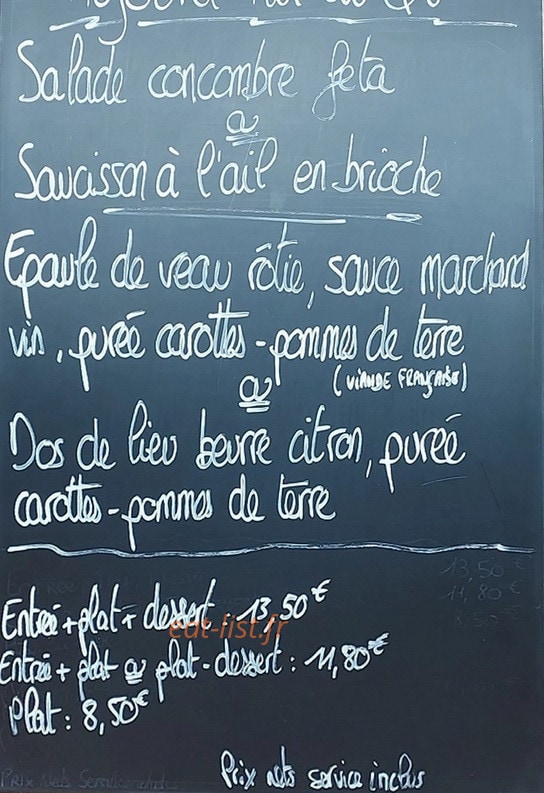 Salade concombre feta
ou
Saucisson à l'ail en brioche
Epaule de veau rôtie, sauce marchand
vin, purée carottes-pommes de terre
(VIANDE FRANÇAISE)
ou
Dos de lieu beurre citron, purée
carottes-pommes de terre
13,50€
11,80€
Entrée+plat+dessert : 13,50€
eat-list.fr
Entrée+ plat ou plat-dessert : 11,80€
Plat : 8,50€
Prix nets service inclus